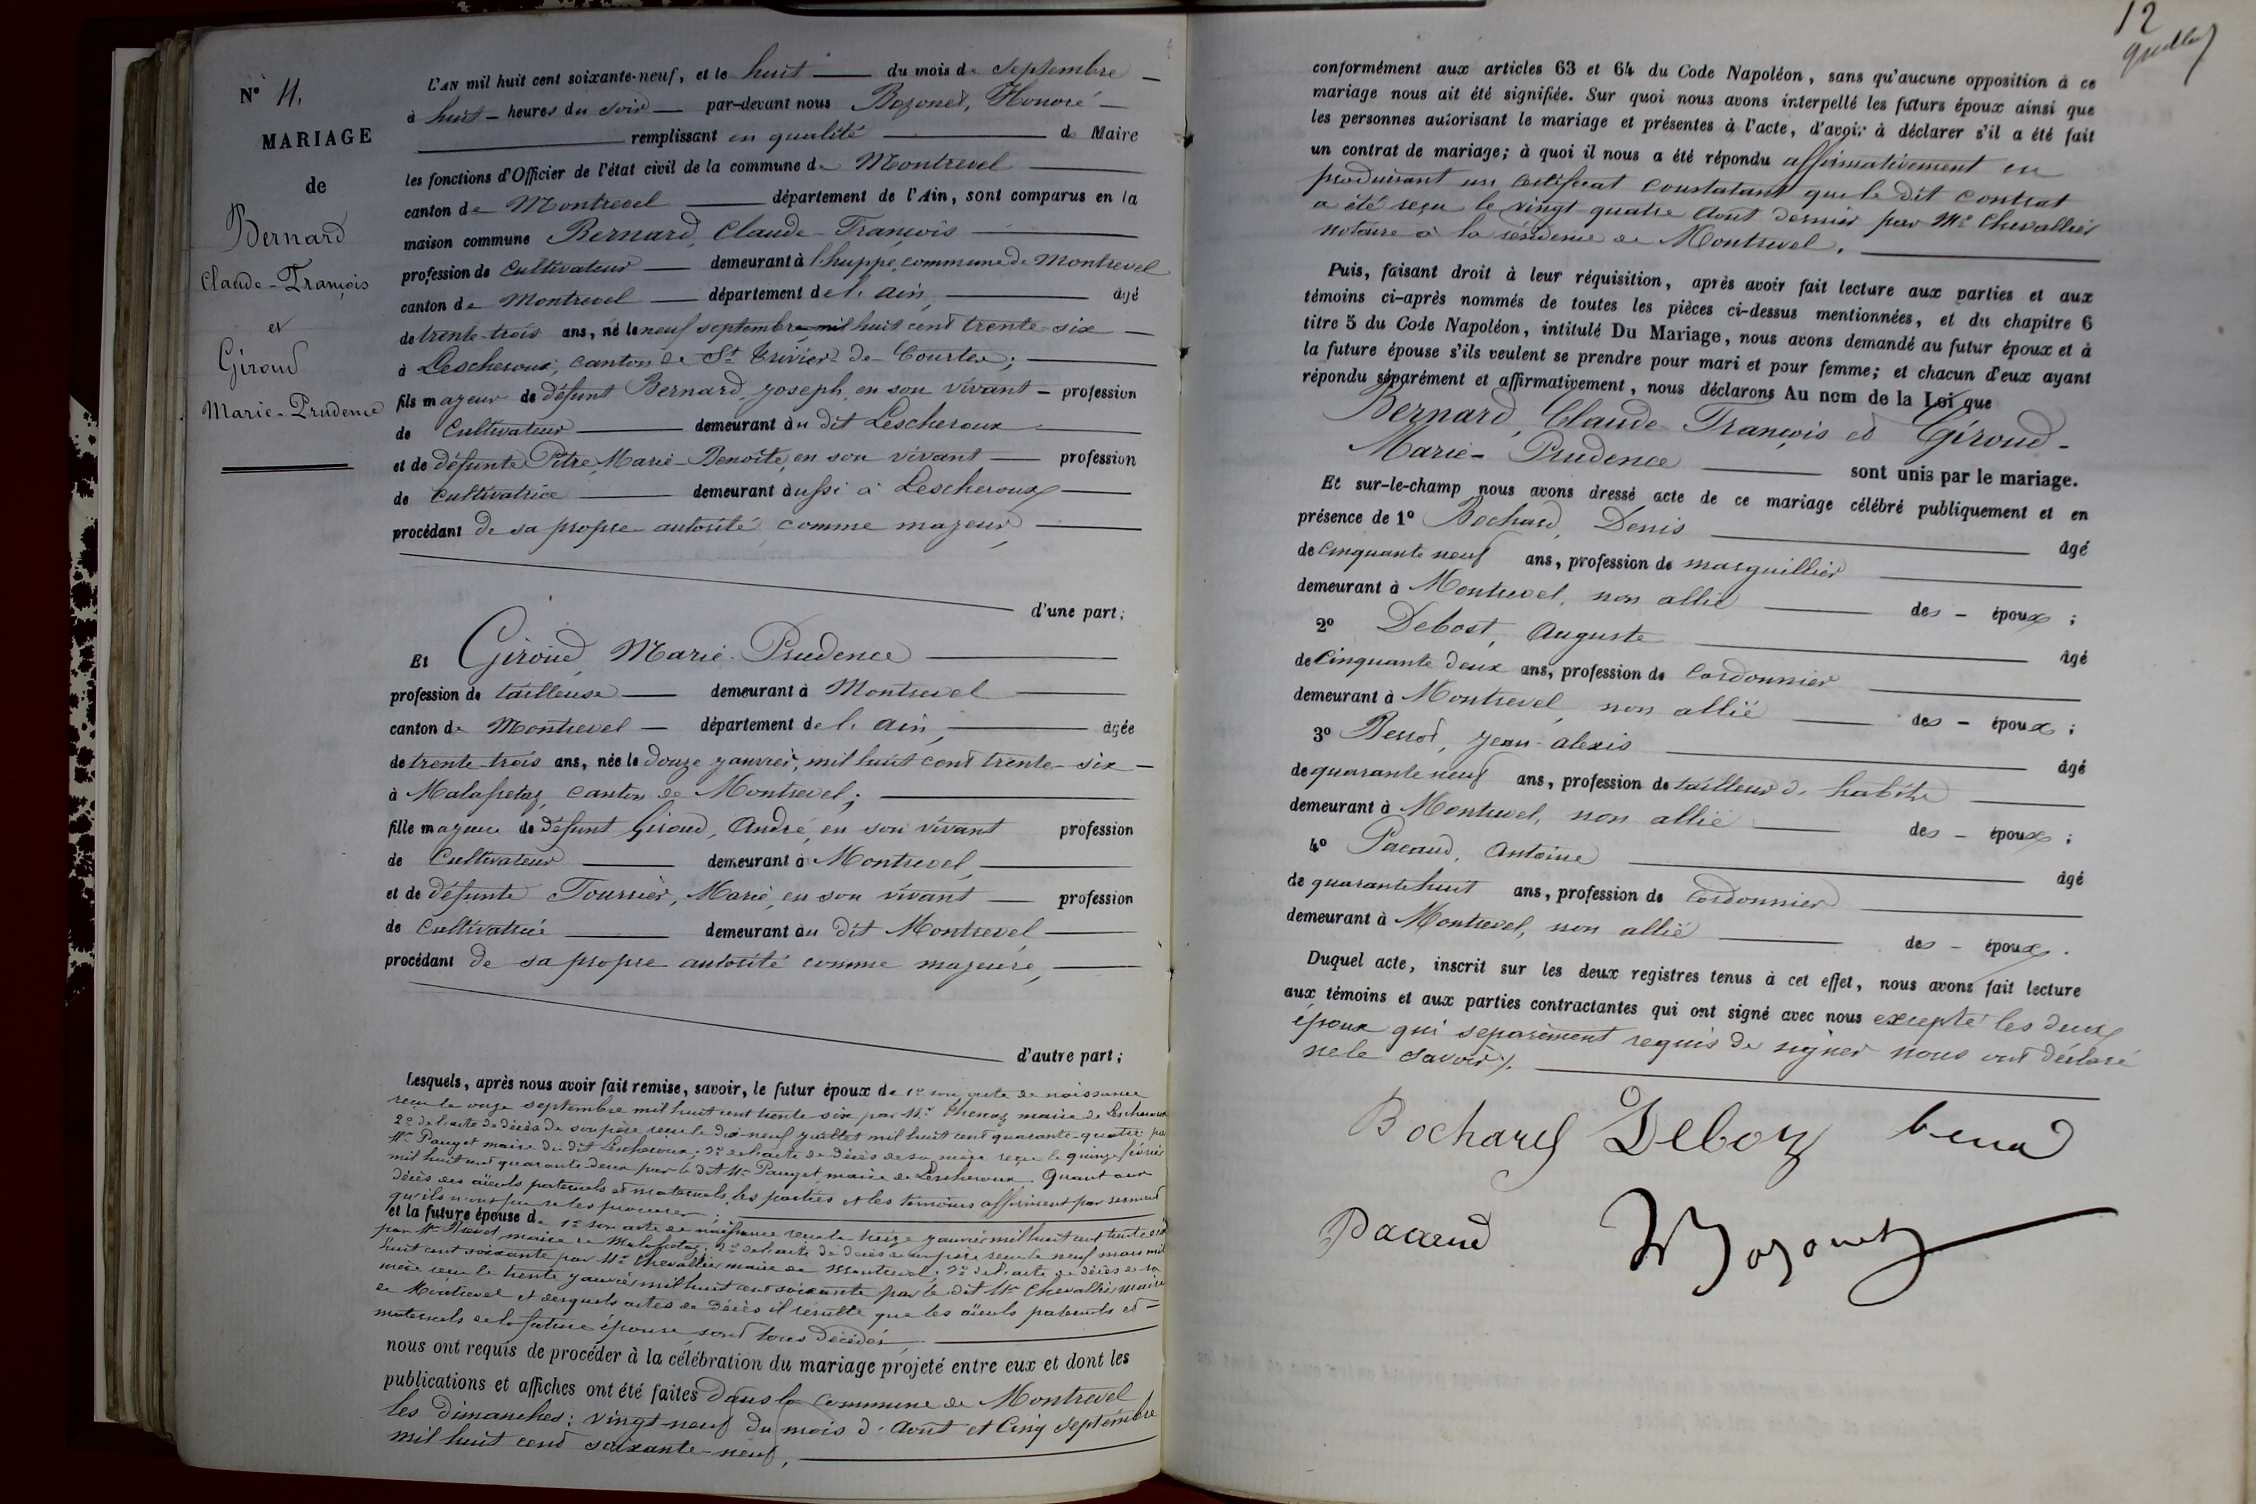 N° 11.
MARIAGE
de
Bernard
Claude-François
et
Giroud
Marie-Prudence
L'AN mil huit cent soixante-neuf, et le huit du mois de septembre
à huit heures du soir par-devant nous Bozonet, Honoré
remplissant en qualité de Maire
les fonctions d'Officier de l'état civil de la commune de Montrevel
canton de Montrevel département de l'Ain, sont comparus en la
maison commune Bernard, Claude-François
profession de Cultivateur demeurant à l'huppe, commune de Montrevel
canton de Montrevel département de l'ain, âgé
de trente-trois ans, né le neuf septembre mil huit cent trente-six
à Lescheroux, canton de St Trivier-de-Courtes;
fils majeur de défunt Bernard, Joseph, en son vivant profession
de Cultivateur demeurant au dit Lescheroux
et de défunte Pitre, Marie-Benoite, en son vivant profession
de Cultivatrice demeurant aussi à Lescheroux
procédant de sa propre autorité comme majeur,
d'une part;
Et Giroud, Marie-Prudence
profession de tailleuse demeurant à Montrevel
canton de Montrevel département de l'ain, âgée
de trente-trois ans, née le douze janvier, mil huit cent trente-six
à Malafretaz, canton de Montrevel;
fille majeure de défunt Giroud, André, en son vivant profession
de Cultivateur demeurant à Montrevel,
et de défunte Tournier, Marie, en son vivant profession
de Cultivatrice demeurant au dit Montrevel,
procédant de sa propre autorité comme majeure,
d'autre part;
Lesquels, après nous avoir fait remise, savoir, le futur époux de 1° son acte de naissance
reçu le onze septembre mil huit cent trente-six par Mr maire de Lescheroux
2° de l'acte de décès de son père reçu le dix-neuf juillet mil huit cent quarante-quatre par
Mr Pauget maire du dit Lescheroux; 3° de l'acte de décès de sa mère reçu le quinze février
mil huit cent quarante-deux par le dit Mr Pauget, maire de Lescheroux. Quant aux
décès des aïeuls paternels et maternels, les parties et les témoins affirment par serment
qu'ils n'ont pu se les procurer;
et la future épouse de 1° son acte de naissance reçu le treize janvier mil huit cent trente-six
par Mr maire de Malafretaz; 2° de l'acte de décès de son père reçu le neuf mars mil
huit cent soixante par Mr Chevallier maire de Montrevel; 3° de l'acte de décès de sa
mère reçu le trente janvier mil huit cent soixante par le dit Mr Chevallier maire
de Montrevel et desquels actes de décès il résulte que les aïeuls paternels et
maternels de la future épouse sont tous décédés,
nous ont requis de procéder à la célébration du mariage projeté entre eux et dont les
publications et affiches ont été faites dans la commune de Montrevel
les dimanches: vingt-neuf du mois d'Aout et Cinq septembre
mil huit cent soixante-neuf,
12
conformément aux articles 63 et 64 du Code Napoléon, sans qu'aucune opposition à ce
mariage nous ait été signifiée. Sur quoi nous avons interpellé les futurs époux ainsi que
les personnes autorisant le mariage et présentes à l'acte, d'avoir à déclarer s'il a été fait
un contrat de mariage; à quoi il nous a été répondu affirmativement en
produisant un certificat constatant que le dit contrat
a été reçu le vingt-quatre Aout dernier par Me Chevallier
notaire à la résidence de Montrevel.
Puis, faisant droit à leur réquisition, après avoir fait lecture aux parties et aux
témoins ci-après nommés de toutes les pièces ci-dessus mentionnées, et du chapitre 6
titre 5 du Code Napoléon, intitulé Du Mariage, nous avons demandé au futur époux et à
la future épouse s'ils veulent se prendre pour mari et pour femme; et chacun d'eux ayant
répondu séparément et affirmativement, nous déclarons Au nom de la Loi que
Bernard, Claude-François et Giroud
Marie-Prudence sont unis par le mariage.
Et sur-le-champ nous avons dressé acte de ce mariage célébré publiquement et en
présence de 1° Bochard, Denis âgé
de cinquante neuf ans, profession de marguillier
demeurant à Montrevel, non allié des époux;
2° Debost, Auguste âgé
de Cinquante deux ans, profession de Cordonnier
demeurant à Montrevel, non allié des époux;
3° Jean-Alexis âgé
de quarante neuf ans, profession de tailleur d'habits
demeurant à Montrevel, non allié des époux;
4° Pacaud, Antoine âgé
de quarante huit ans, profession de Cordonnier
demeurant à Montrevel, non allié des époux.
Duquel acte, inscrit sur les deux registres tenus à cet effet, nous avons fait lecture
aux témoins et aux parties contractantes qui ont signé avec nous excepté les deux
époux qui séparément requis de signer nous ont déclaré
ne le savoir.
Bochard Deboz
Pacaud Bozonet